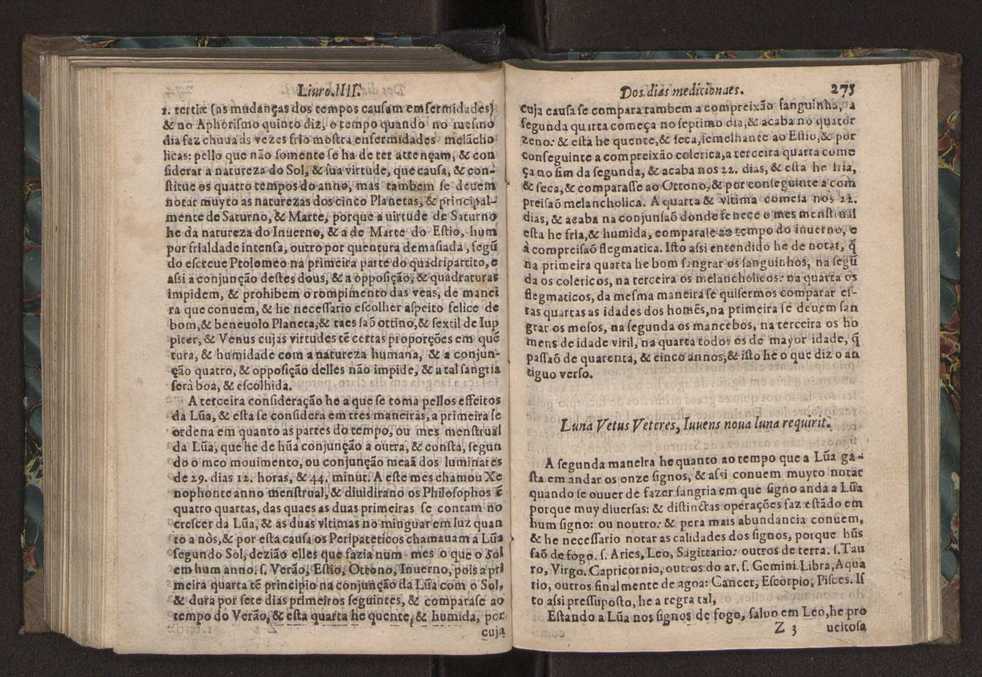 Liuro. IIII.
1. tertiæ (as mudanças dos tempos causam emfermidades)
& no Aphorismo quinto diz, o tempo quando no mesmo
dia faz chuua ás vezes frio mostra enfermidades melácho
licas: pello que não somente se ha de ter attençam, & con
siderar a natureza do Sol, & sua virtude, que causa, & con-
stitue os quatro tempos do anno, mas tambem se deuem
notar muyto as naturezas dos cinco Planetas, & principal-
mente de Saturno, & Marte, porque a uirtude de Saturno
he da natureza do Inuerno, & a de Marte do Estio, hum
por frialdade intensa, outro por quentura demasiada, segũ
do escreue Ptolomeo na primeira parte do quadripartito, e
assi a conjunção destes dous, & a opposição, & quadraturas
impidem, & prohibem o rompimento das veas, de manei
ra que conuem, & he necessario escolher aspeito felice de
bom, & beneuolo Planeta, & taes saõ ottino, & sextil de Iup
piter, & Venus cujas virtudes tẽ certas proporções em quẽ
tura, & humidade com a natureza humana, & a conjun-
ção quatro, & opposição delles não impide, & a tal sangria
serà boa, & escolhida.
A terceira consideração he a que se toma pellos effeitos
da Lũa, & esta se considera em tres maneiras, a primeira se
ordena em quanto as partes do tempo, ou mes menstrual
da Lũa, que he de hũa conjunção a outra, & consta, segun
do o meo mouimento, ou conjunção meaã dos luminares
de 29. dias 12. horas, & 44. minut. A este mes chamou Xe
nophonte anno menstrual, & diuidirano os Philosophos ẽ
quatro quartas, das quaes as duas primeiras se contam no
crescer da Lũa, & as duas vltimas no minguar em luz quan
to a nòs, & por esta causa os Peripateticos chamauam a Lũa
segundo Sol, dezião elles que fazia num mes o que o Sol
em hum anno. s. Verão, Estio, Ottono, Inuerno, pois a pri
meira quarta tẽ principio na conjunção da Lũa com o Sol,
& dura por sete dias primeiros seguintes, & comparase ao
tempo do Verão, & esta quarta he quente, & humida, por
cuja
Dos dias medicinaes. 275
cuja causa se compara tambem a compreixão sanguinha, a
segunda quarta começa no septimo dia, & acaba no quator
zeno: & esta he quente, & seca, semelhante ao Estio, & por
conseguinte a compreixão colerica, a terceira quarta come
ça no fim da segunda, & acaba nos 22. dias, & esta he fria,
& seca, & comparasse ao Ottono, & por conseguinte a com
preisaõ melancholica. A quarta & vltima comeia nos 22.
dias, & acaba na conjunsaõ donde fenece o mes menstrual
esta he fria, & humida, comparase ao tempo do inuerno, e
à compreisaõ flegmatica. Isto assi entendido he de notar, q̃
na primeira quarta he bom sangrar os sanguinhos, na segũ
da os colericos, na terceira os melancholicos: na quarta os
flegmaticos, da mesma maneira se quisermos comparar es-
tas quartas as idades dos homẽs, na primeira se deuem san
grar os mosos, na segunda os mancebos, na terceira os ho
mens de idade viril, na quarta todos os de mayor idade, q̃
passaõ de quarenta, & cinco annos, & isto he o que diz o an
tiguo verso.
Luna Vetus Veteres, Iuuens noua luna requirit.
A segunda maneira he quanto ao tempo que a Lũa ga-
sta em andar os onze signos, & assi conuem muyto notar
quando se ouuer de fazer sangria em que signo anda a Lũa
porque muy diuersas: & distinctas operações faz estãdo em
hum signo: ou noutro: & pera mais abundancia conuem,
& he necessario notar as calidades dos signos, porque hũs
saõ de fogo. s. Aries, Leo, Sagittario: outros de terra. s. Tau
ro, Virgo. Capricornio, outros do ar. s. Gemini Libra, Aqua
rio, outros finalmente de agoa: Cancer, Escorpio, Pisces. Is
to assi pressuposto, he a regra tal,
Estando a Lũa nos signos de fogo, saluo em Leo, he pro
Z 3 ueitosa